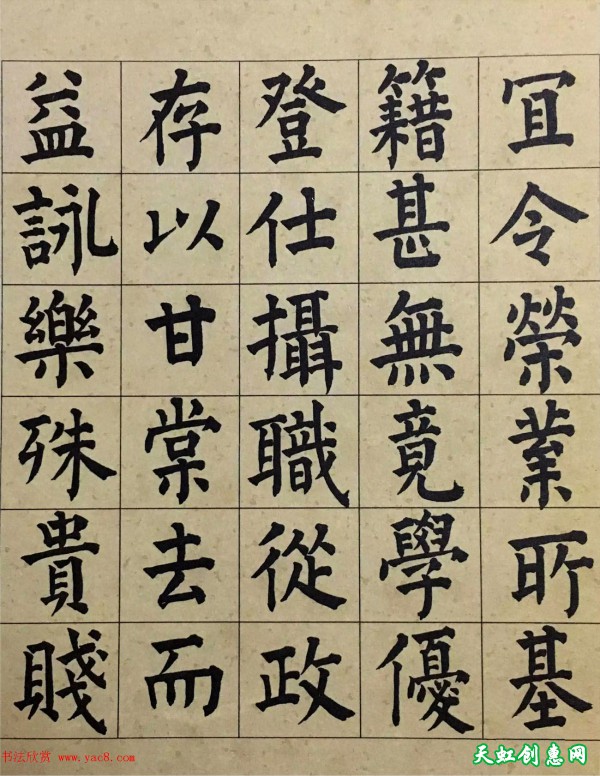 冝令榮業所基
籍甚無竟學優
登仕攝職從政
存以甘棠去而
益詠樂殊貴賤
书法欣赏 www.yac8.com
天虹创惠网